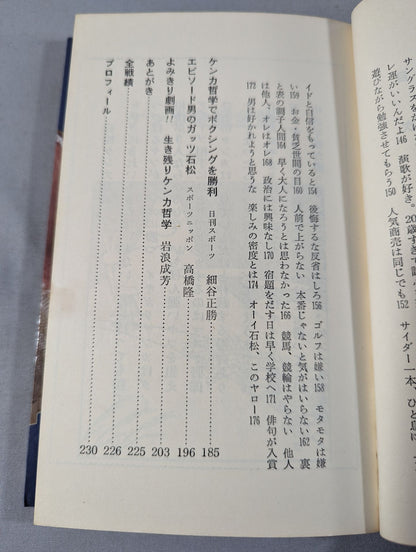 サングラスをか
レ運がいいんだよ146　演歌が好き。20歳すぎて
遊びながら勉強させてもらう150　人気商売は同じでも
サイダー一本、ひと
イドと自信をもっていると154　後悔するな反省はしろ156　ゴルフは嫌い158　モタモタは嫌
い159　お金・貧乏世間の目160　人前で上がらない　本番じゃないと気がはいらない162　裏
と表の調子人間164　早く大人になろうとは思わなかった166　競馬、競輪はやらない　他人
は他人、オレはオレ168　政治には興味なし170　宿題をだす日は早く学校へ171　俳句が入賞
172　男は好かれようと思うな　楽しみの密度とは174　オーイ石松、このヤロー176
ケンカ哲学でボクシングを勝利　日刊スポーツ　細谷正勝………185
エピソード男のガッツ石松　スポーツニッポン　高橋隆………196
よみきり劇画!!　生き残りケンカ哲学　岩浪成芳………203
あとがき………225
全戦績………226
プロフィール………230